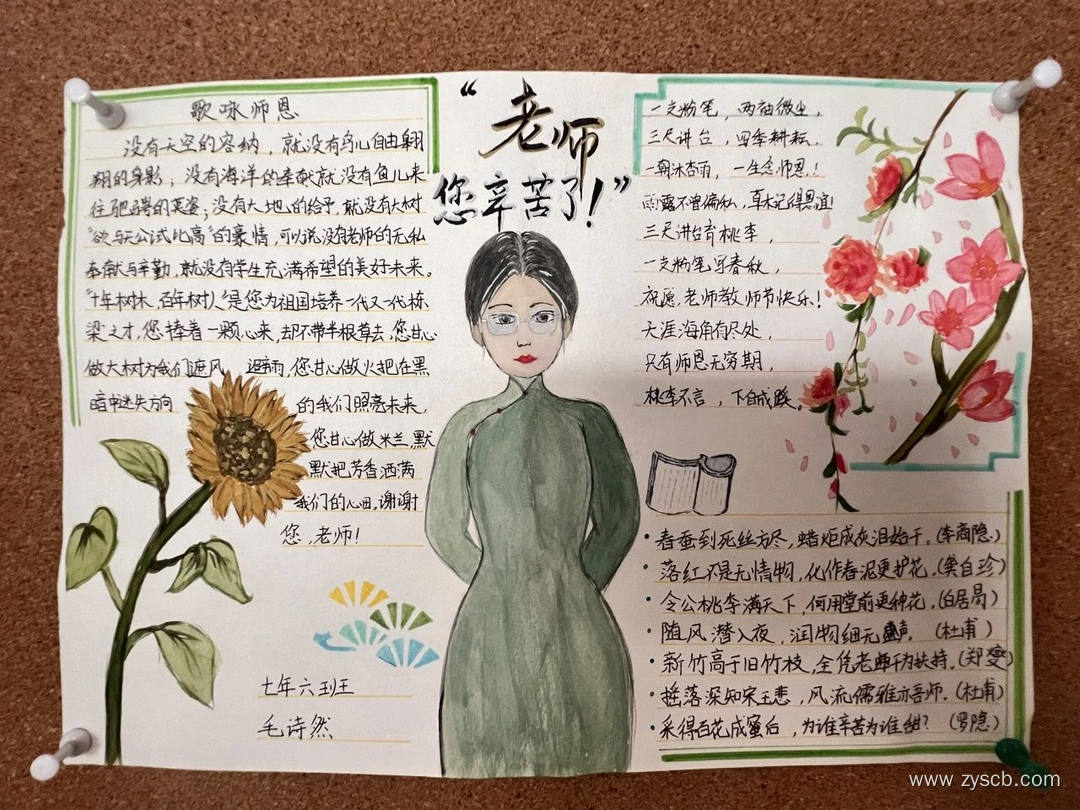 “老师
您辛苦了!”
歌咏师恩
没有天空的容纳，就没有鸟儿自由翱
翔的身影；没有海洋的奉献就没有鱼儿来
往驰骋的英姿；没有大地的给予，就没有大树
“欲与天公试比高”的豪情，可以说没有老师的无私
奉献与辛勤，就没有学生充满希望的美好未来。
“十年树木，百年树人”是您为祖国培养一代又一代栋
梁之才，您捧着一颗心来，却不带半根草去，您甘心
做大树为我们遮风 避雨，您甘心做火把在黑
暗中迷失方向 的我们照亮未来，
您甘心做米兰默
默把芳香洒满
我们的心田，谢谢
您，老师!
七年六班
毛诗然
一支粉笔，两袖微尘，
三尺讲台，四季耕耘，
一朝沐杏雨，一生念师恩.!
雨露不曾偏私，草木记得恩谊!
三尺讲台育桃李，
一支粉笔写春秋，
祝愿，老师教师节快乐!
天涯海角有尽处，
只有师恩无穷期，
桃李不言，下自成蹊。
·春蚕到死丝方尽，蜡炬成灰泪始干。(李商隐.)
·落红不是无情物，化作春泥更护花。(龚自珍)
·令公桃李满天下，何用堂前更种花。(白居易)
·随风潜入夜，润物细无声。(杜甫)
·新竹高于旧竹枝，全凭老干为扶持。(郑燮)
·摇落深知宋玉悲，风流儒雅亦吾师。(杜甫)
·采得百花成蜜后，为谁辛苦为谁甜?(罗隐)
www.zyscb.com